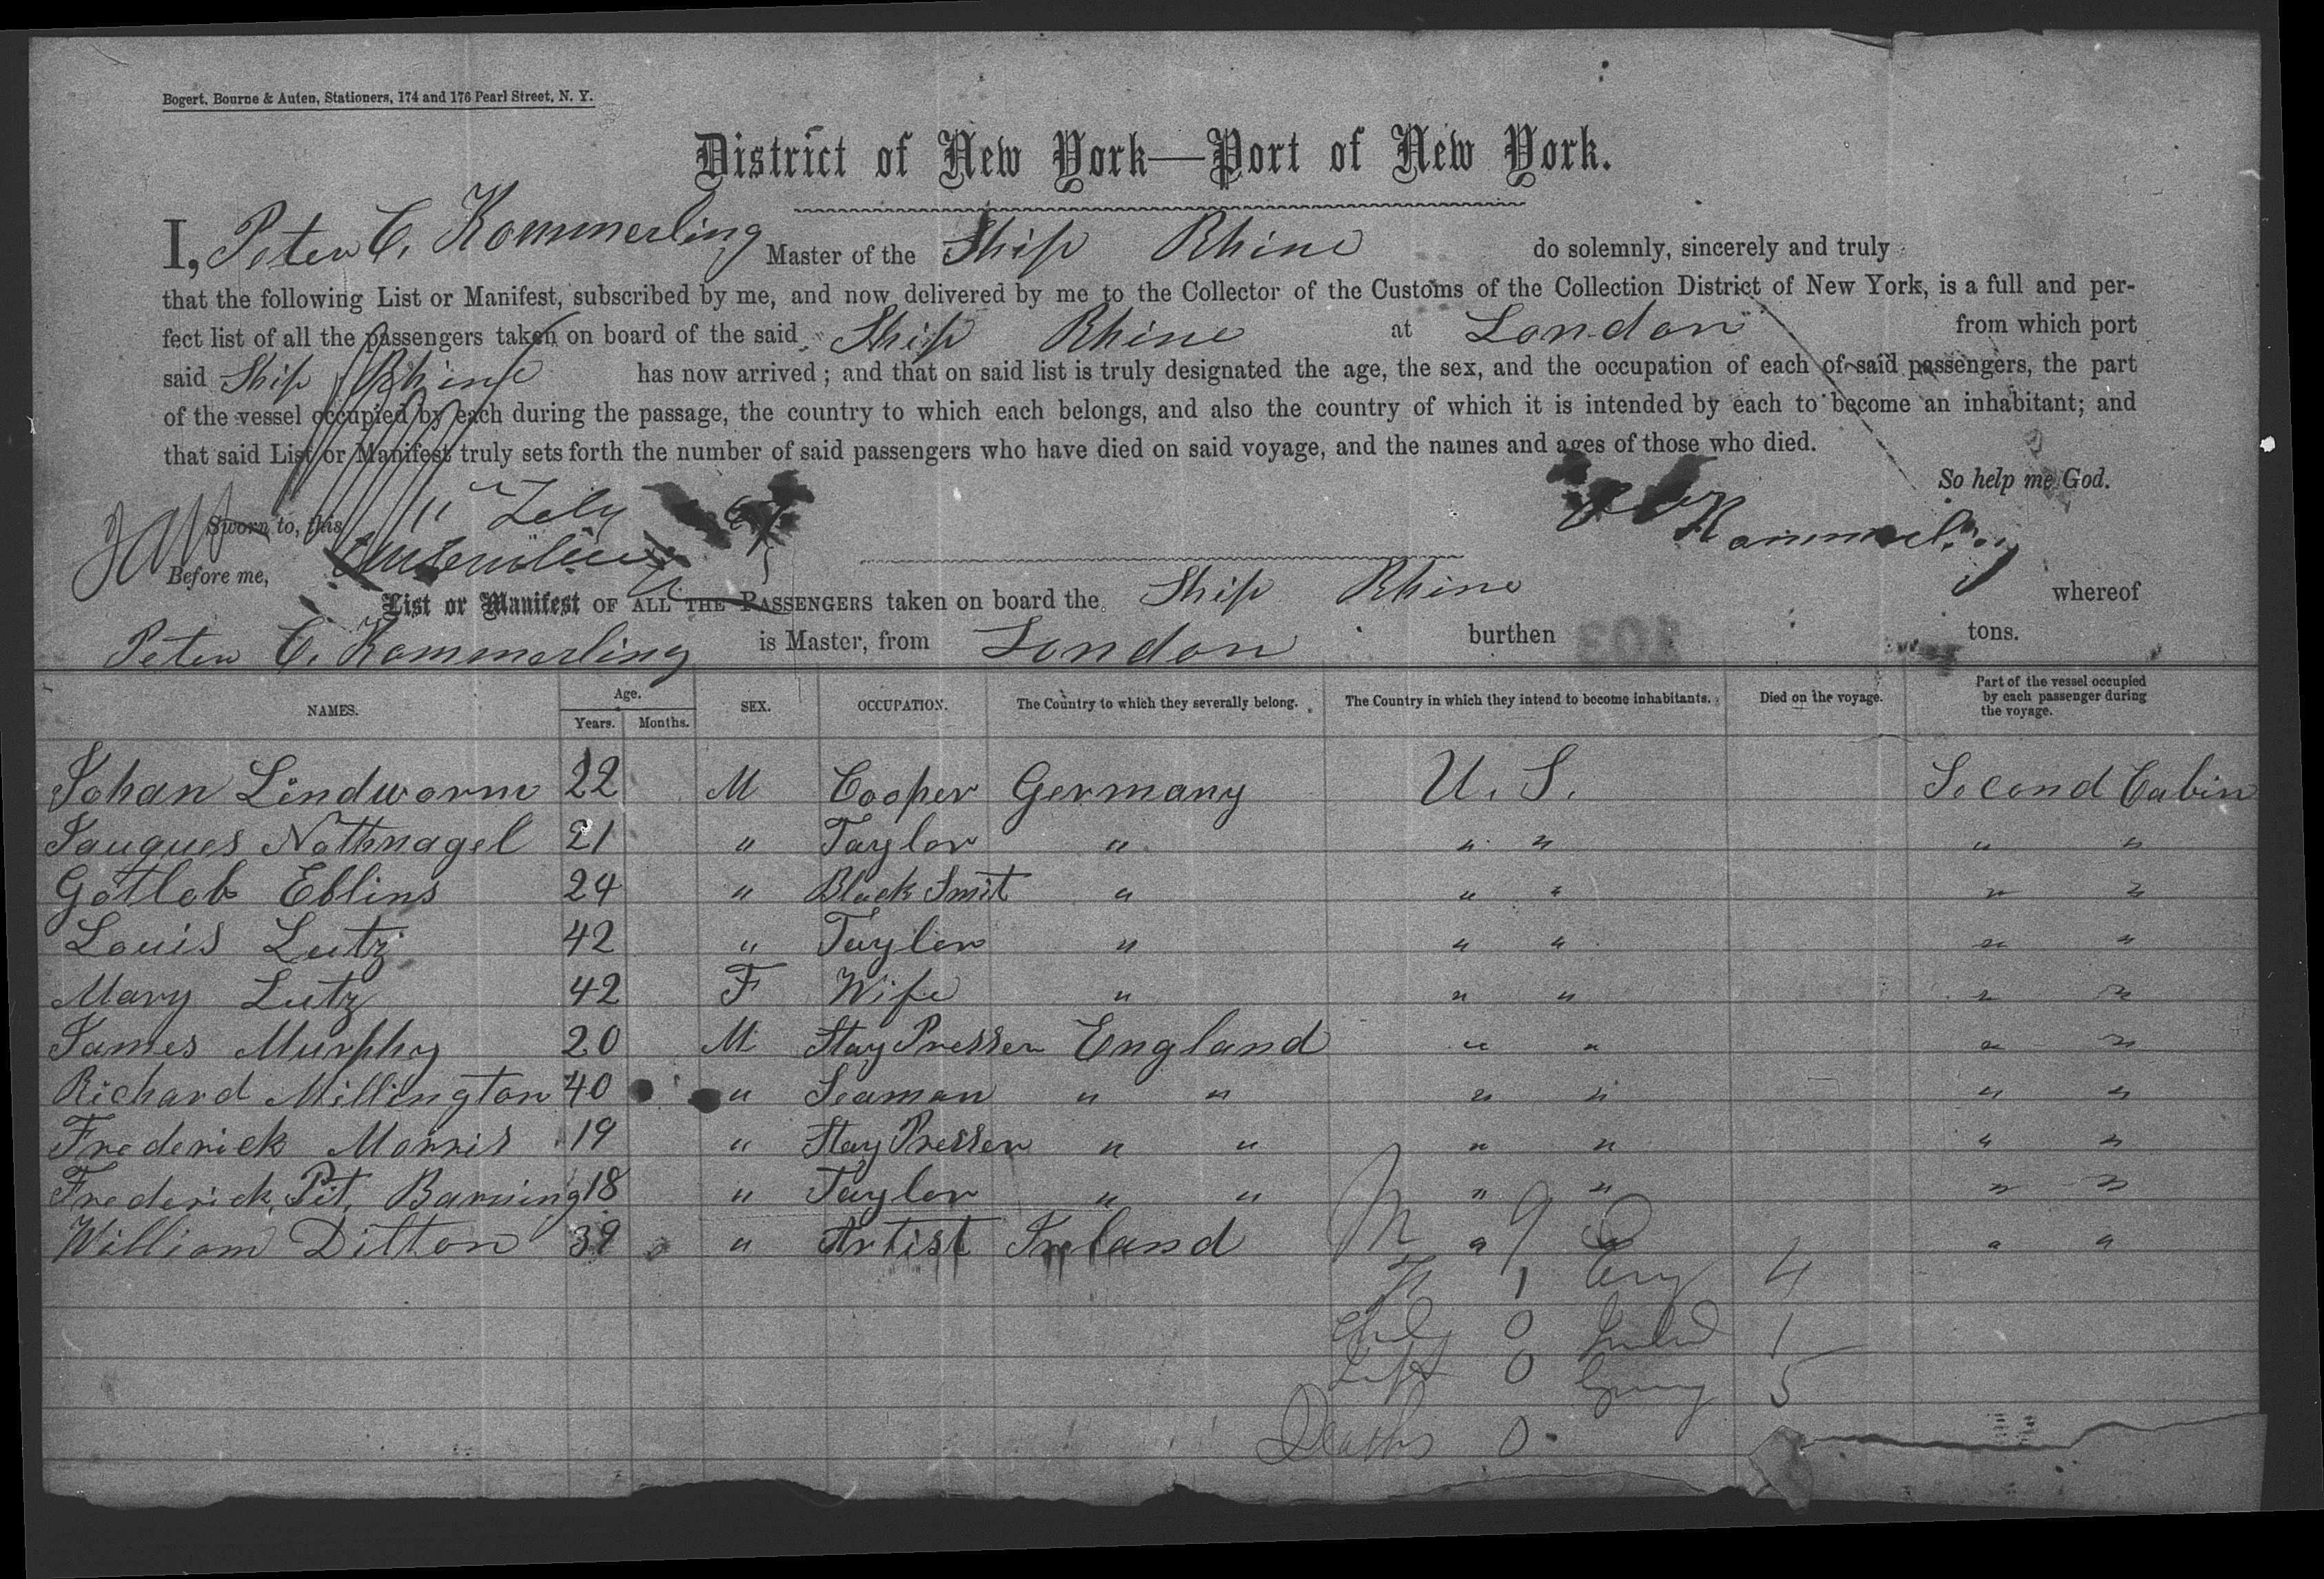 Bogert, Bourne & Auten, Stationers, 174 and 176 Pearl Street, N. Y.
District of New York—Port of New York.
I, Peter C. Kommerling Master of the Ship Rhine do solemnly, sincerely and truly
that the following List or Manifest, subscribed by me, and now delivered by me to the Collector of the Customs of the Collection District of New York, is a full and per-
fect list of all the passengers taken on board of the said Ship Rhine at London from which port
said Ship Rhine has now arrived; and that on said list is truly designated the age, the sex, and the occupation of each of said passengers, the part
of the vessel occupied by each during the passage, the country to which each belongs, and also the country of which it is intended by each to become an inhabitant; and
that said List or Manifest truly sets forth the number of said passengers who have died on said voyage, and the names and ages of those who died.
So help me God.
Sworn to, this 11
Before me,
List or Manifest OF ALL THE PASSENGERS taken on board the Ship Rhine whereof
Peter C. Kommerling is Master, from London burthen tons.
NAMES. Age. Years. Months. SEX. OCCUPATION. The Country to which they severally belong. The Country in which they intend to become inhabitants. Died on the voyage. Part of the vessel occupied by each passenger during the voyage.
Johan Lindworm 22 M Cooper Germany U. S. Second Cabin
Jauques Nothnagel 21 " Taylor " " " " "
Gotlob Eblins 24 " Black Smit " " " " "
Louis Lutz 42 " Taylor " " " " "
Mary Lutz 42 F Wife " " " " "
James Murphy 20 M Stay Presser England " " " "
Richard Millington 40 " Seaman " " " " " "
Frederick Morris 19 " Stay Presser " " " " " "
Frederick Pit. Barning 18 " Taylor " " " " " "
William Ditton 39 " Artist Ireland " " " "
M 9
F 1 Eng 4
0 1
0 5
Deaths 0